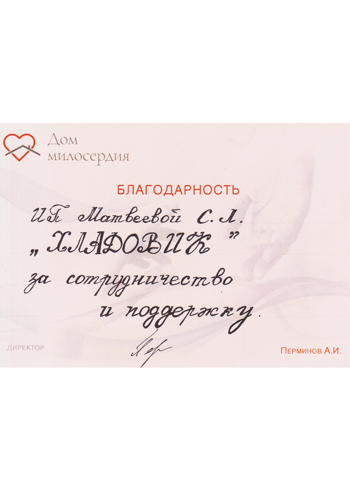 Дом
милосердия
БЛАГОДАРНОСТЬ
ИП Матвеевой С.Л.
„ХЛАДОВИК”
за сотрудничество
и поддержку.
ДИРЕКТОР
Перминов А.И.